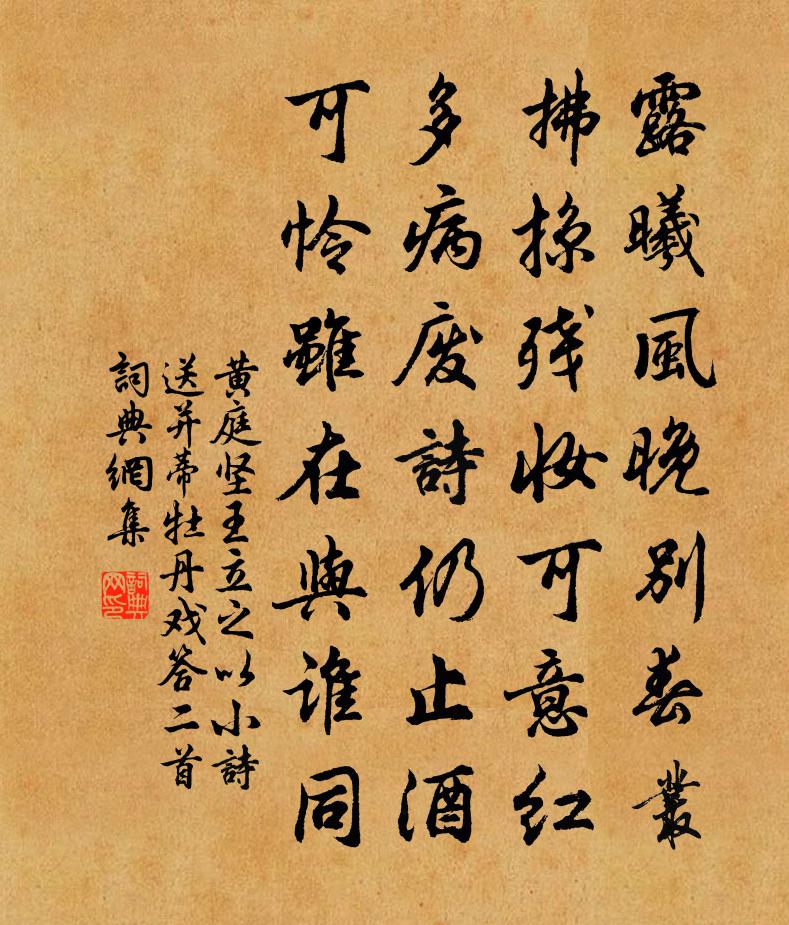 露曦風晚别春叢
拂掠残妆可意红
多病废詩仍止酒
可怜雖在與谁同
黄庭坚王立之以小詩
送并蒂牡丹戏答二首
詞典網集
詞典网印